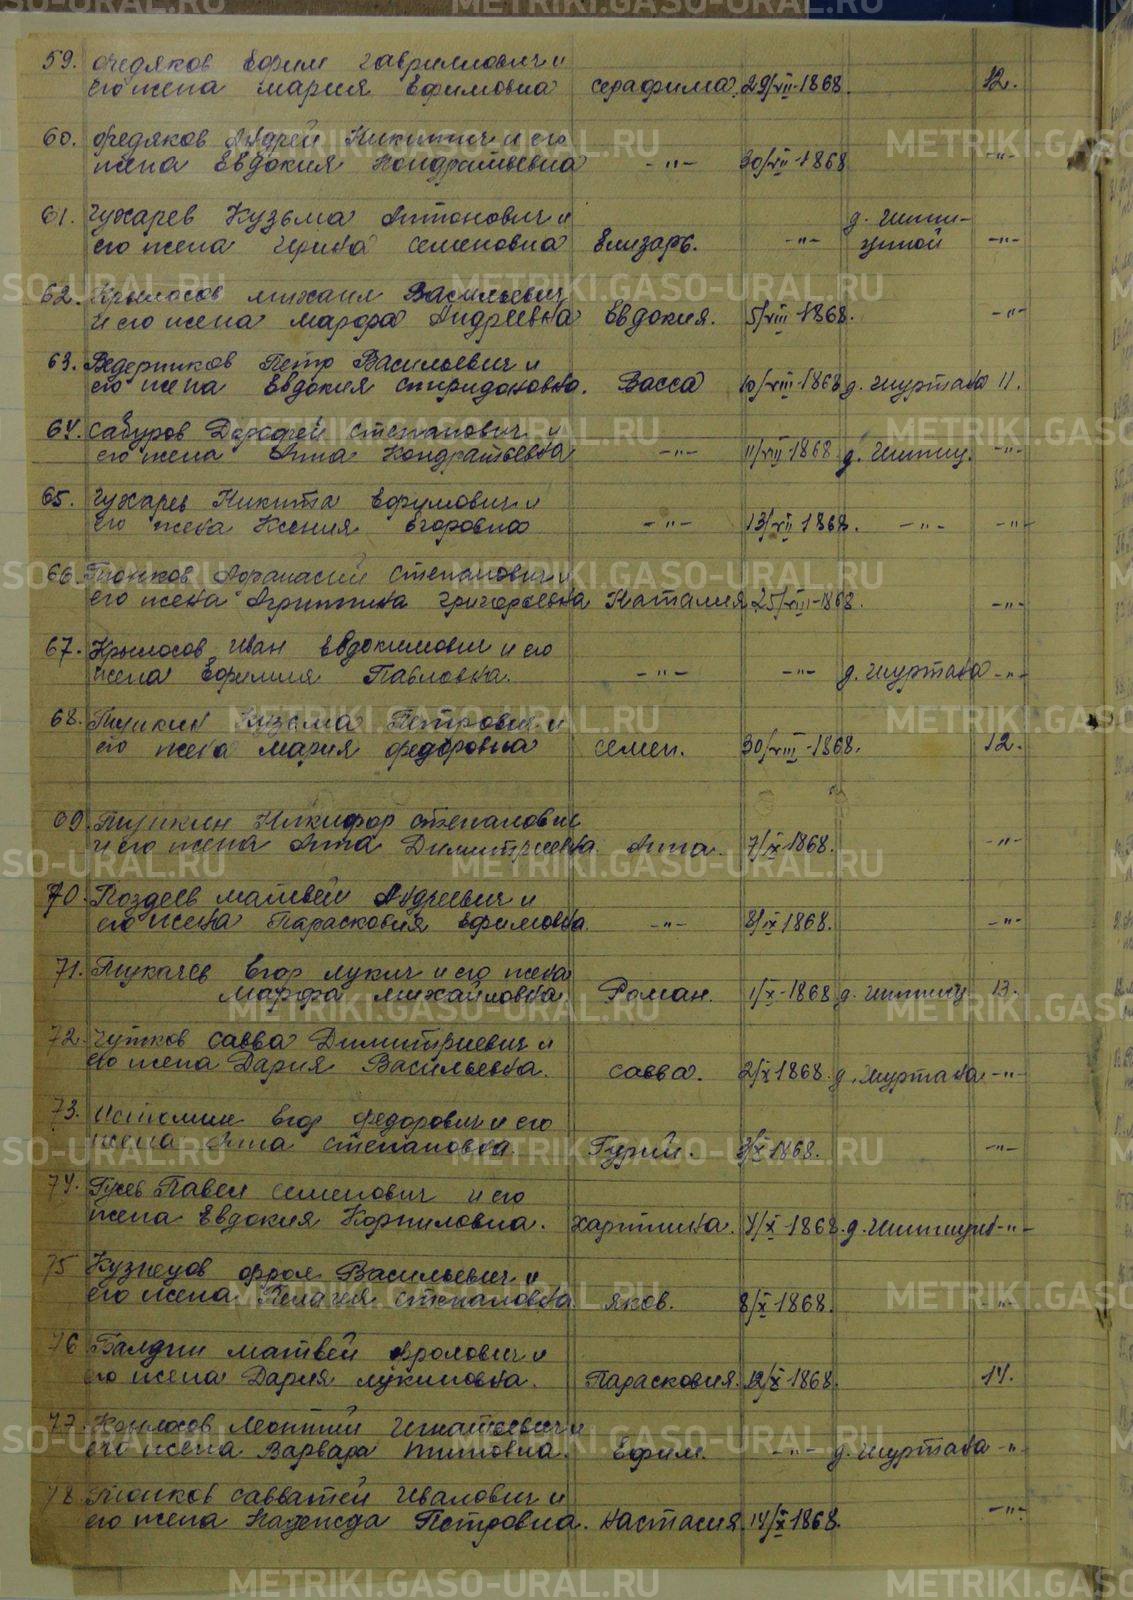 59. Федяков Ефим Гаврилович и
его жена Мария Ефимовна Серафима 29/VII-1868. 12.
60. Федяков Андрей Никитич и его
жена Евдокия Кондратьевна -"- 30/VII-1868 -"-
61. Чухарев Кузьма Антонович и д.
его жена Ирина Семеновна Елизаръ. -"- -"-
62. Крылосов Михаил Васильевич
и его жена Марфа Андреевна Евдокия. 5/VIII-1868. -"-
63. Ведерников Петр Васильевич и
его жена Евдокия Спиридоновна. Васса 10/VIII-1868 д. Шуртана 11.
64. Сабуров Дорофей Степанович и
его жена Анна Кондратьевна -"- 11/VIII-1868 д. -"-
65. Чухарев Никита Ефимович и
его жена Ксения Егоровна -"- 13/VIII 1868. -"- -"-
66. Тонков Афанасий Степанович и
его жена Агриппина Григорьевна Наталия 25/VIII-1868. -"-
67. Крылосов Иван Евдокимович и его
жена Ефимия Павловна. -"- -"- д. Шуртана -"-
68. Пушкин Кузьма Петрович и
его жена Мария Федоровна Семен. 30/VIII-1868. 12.
69. Пушкин Никифор Степанович
и его жена Анна Димитриевна. Анна. 7/IX-1868. -"-
70. Поздеев Матвей Андреевич и
его жена Парасковия Ефимовна. -"- 8/IX 1868. -"-
71. Пукачев Егор Лукич и его жена
Марфа Михайловна. Роман. 1/X-1868 д. 13.
72. Чутков Савва Димитриевич и
его жена Дария Васильевна. Савва. 2/X 1868. д. Шуртана -"-
73. Истомин Егор Федорович и его
жена Анна Степановна. Гурий. 3/X 1868. -"-
74. Гусев Павел Семенович и его
жена Евдокия Корниловна. Харитина. 4/X-1868. д. -"-
75 Кузнецов Фрол Васильевич и
его жена Пелагея Степановна Яков. 8/X 1868. -"-
76 Балдин Матвей Фролович и
его жена Дария Лукиновна. Парасковия. 12/X-1868. 14.
77. Крылосов Леонтий Игнатьевич и
его жена Варвара Титовна. Ефим. -"- д. Шуртана -"-
78. Тонков Савватей Иванович и
его жена Надежда Петровна. Настасия. 14/X 1868. -"-
METRIKI.GASO-URAL.RU